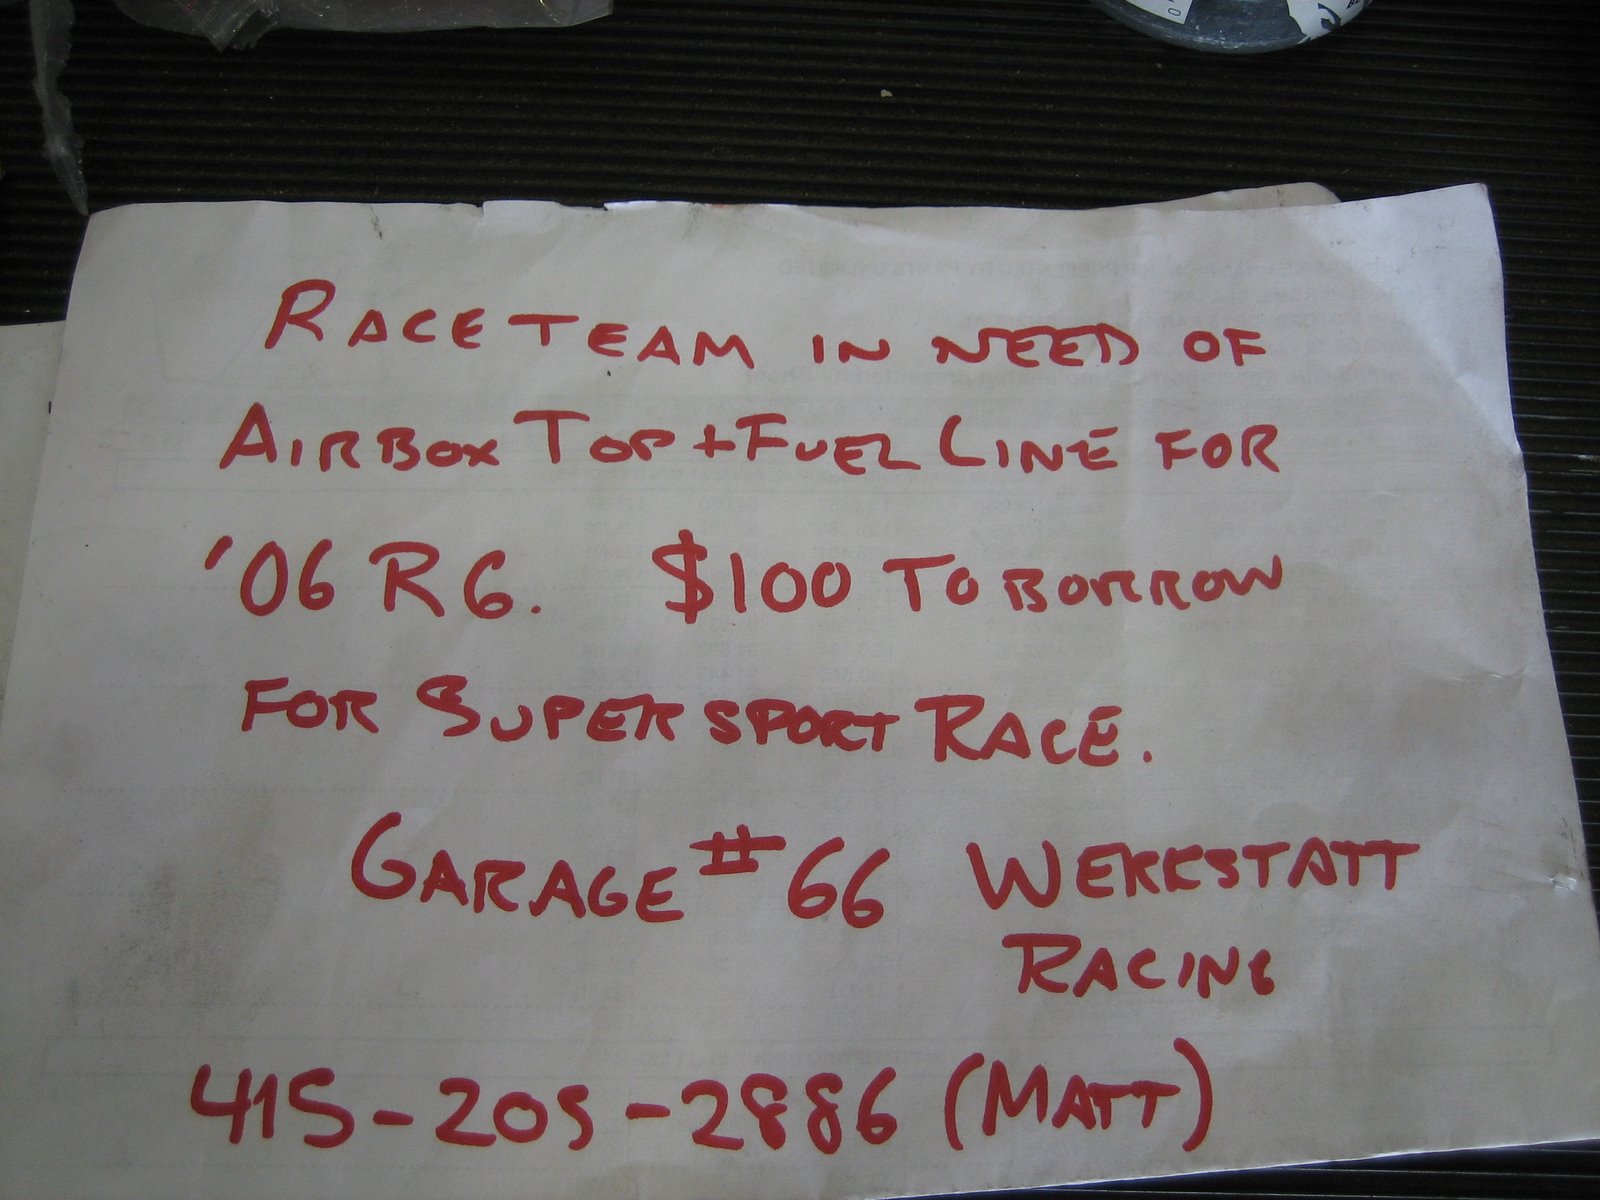 RACE TEAM IN NEED OF
AIRBOX TOP + FUEL LINE FOR
'06 R6. $100 TO BORROW
FOR SUPERSPORT RACE.
GARAGE # 66 WERKSTATT
RACING
415-205-2886 (MATT)